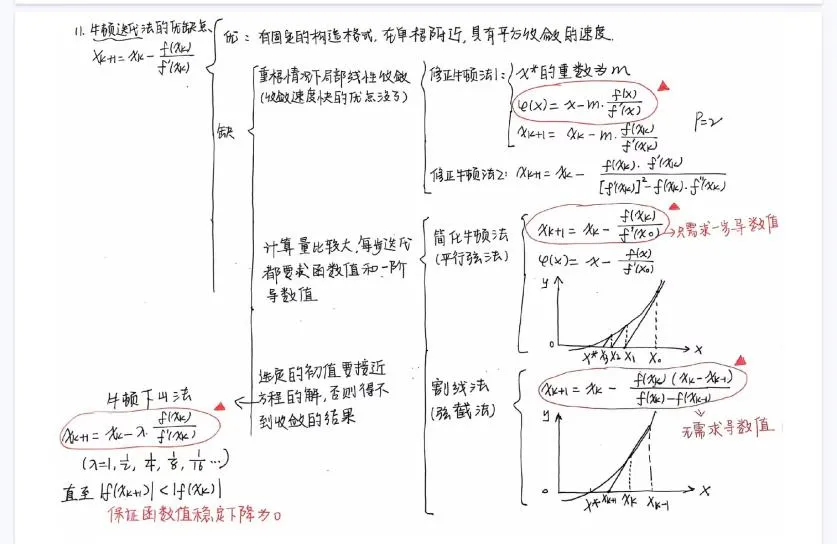 11. 牛顿迭代法的优缺点
x_{k+1} = x_k - f(x_k)/f'(x_k)
优：有固定的构造格式，在单根附近，具有平方收敛的速度.
缺
重根情况下局部线性收敛
(收敛速度快的优点没了)
修正牛顿法1:
x*的重数为m
φ(x) = x - m·f(x)/f'(x)
x_{k+1} = x_k - m·f(x_k)/f'(x_k)
P=2
修正牛顿法2: x_{k+1} = x_k - f(x_k)·f'(x_k)/([f'(x_k)]² - f(x_k)·f''(x_k))
计算量比较大，每步迭代
都要求函数值和一阶
导数值
简化牛顿法
(平行弦法)
x_{k+1} = x_k - f(x_k)/f'(x_0)
→只需求一步导数值
φ(x) = x - f(x)/f'(x_0)
y
0 x* x_3 x_2 x_1 x_0 x
割线法
(弦截法)
x_{k+1} = x_k - f(x_k)(x_k - x_{k-1})/(f(x_k) - f(x_{k-1}))
无需求导数值
y
0 x* x_{k+1} x_k x_{k-1} x
选定的初值要接近
方程的解，否则得不
到收敛的结果
牛顿下山法
x_{k+1} = x_k - λ·f(x_k)/f'(x_k)
(λ=1, 1/2, 1/4, 1/8, 1/16 …)
直至 |f(x_{k+1})| < |f(x_k)|
保证函数值稳定下降为0